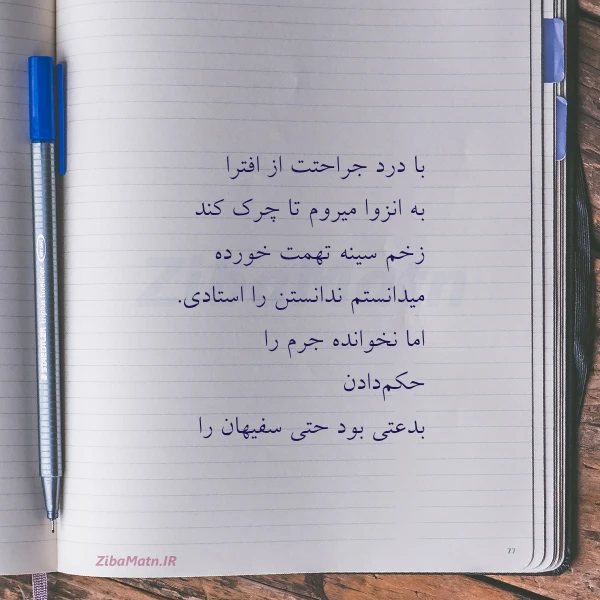 با درد جراحتت از افترا
به انزوا میروم تا چرک کند
زخم سینه تهمت خورده
میدانستم ندانستن را استادی.
اما نخوانده جرم را
حکم‌دادن
بدعتی بود حتی سفیهان را
ZibaMatn.IR
77